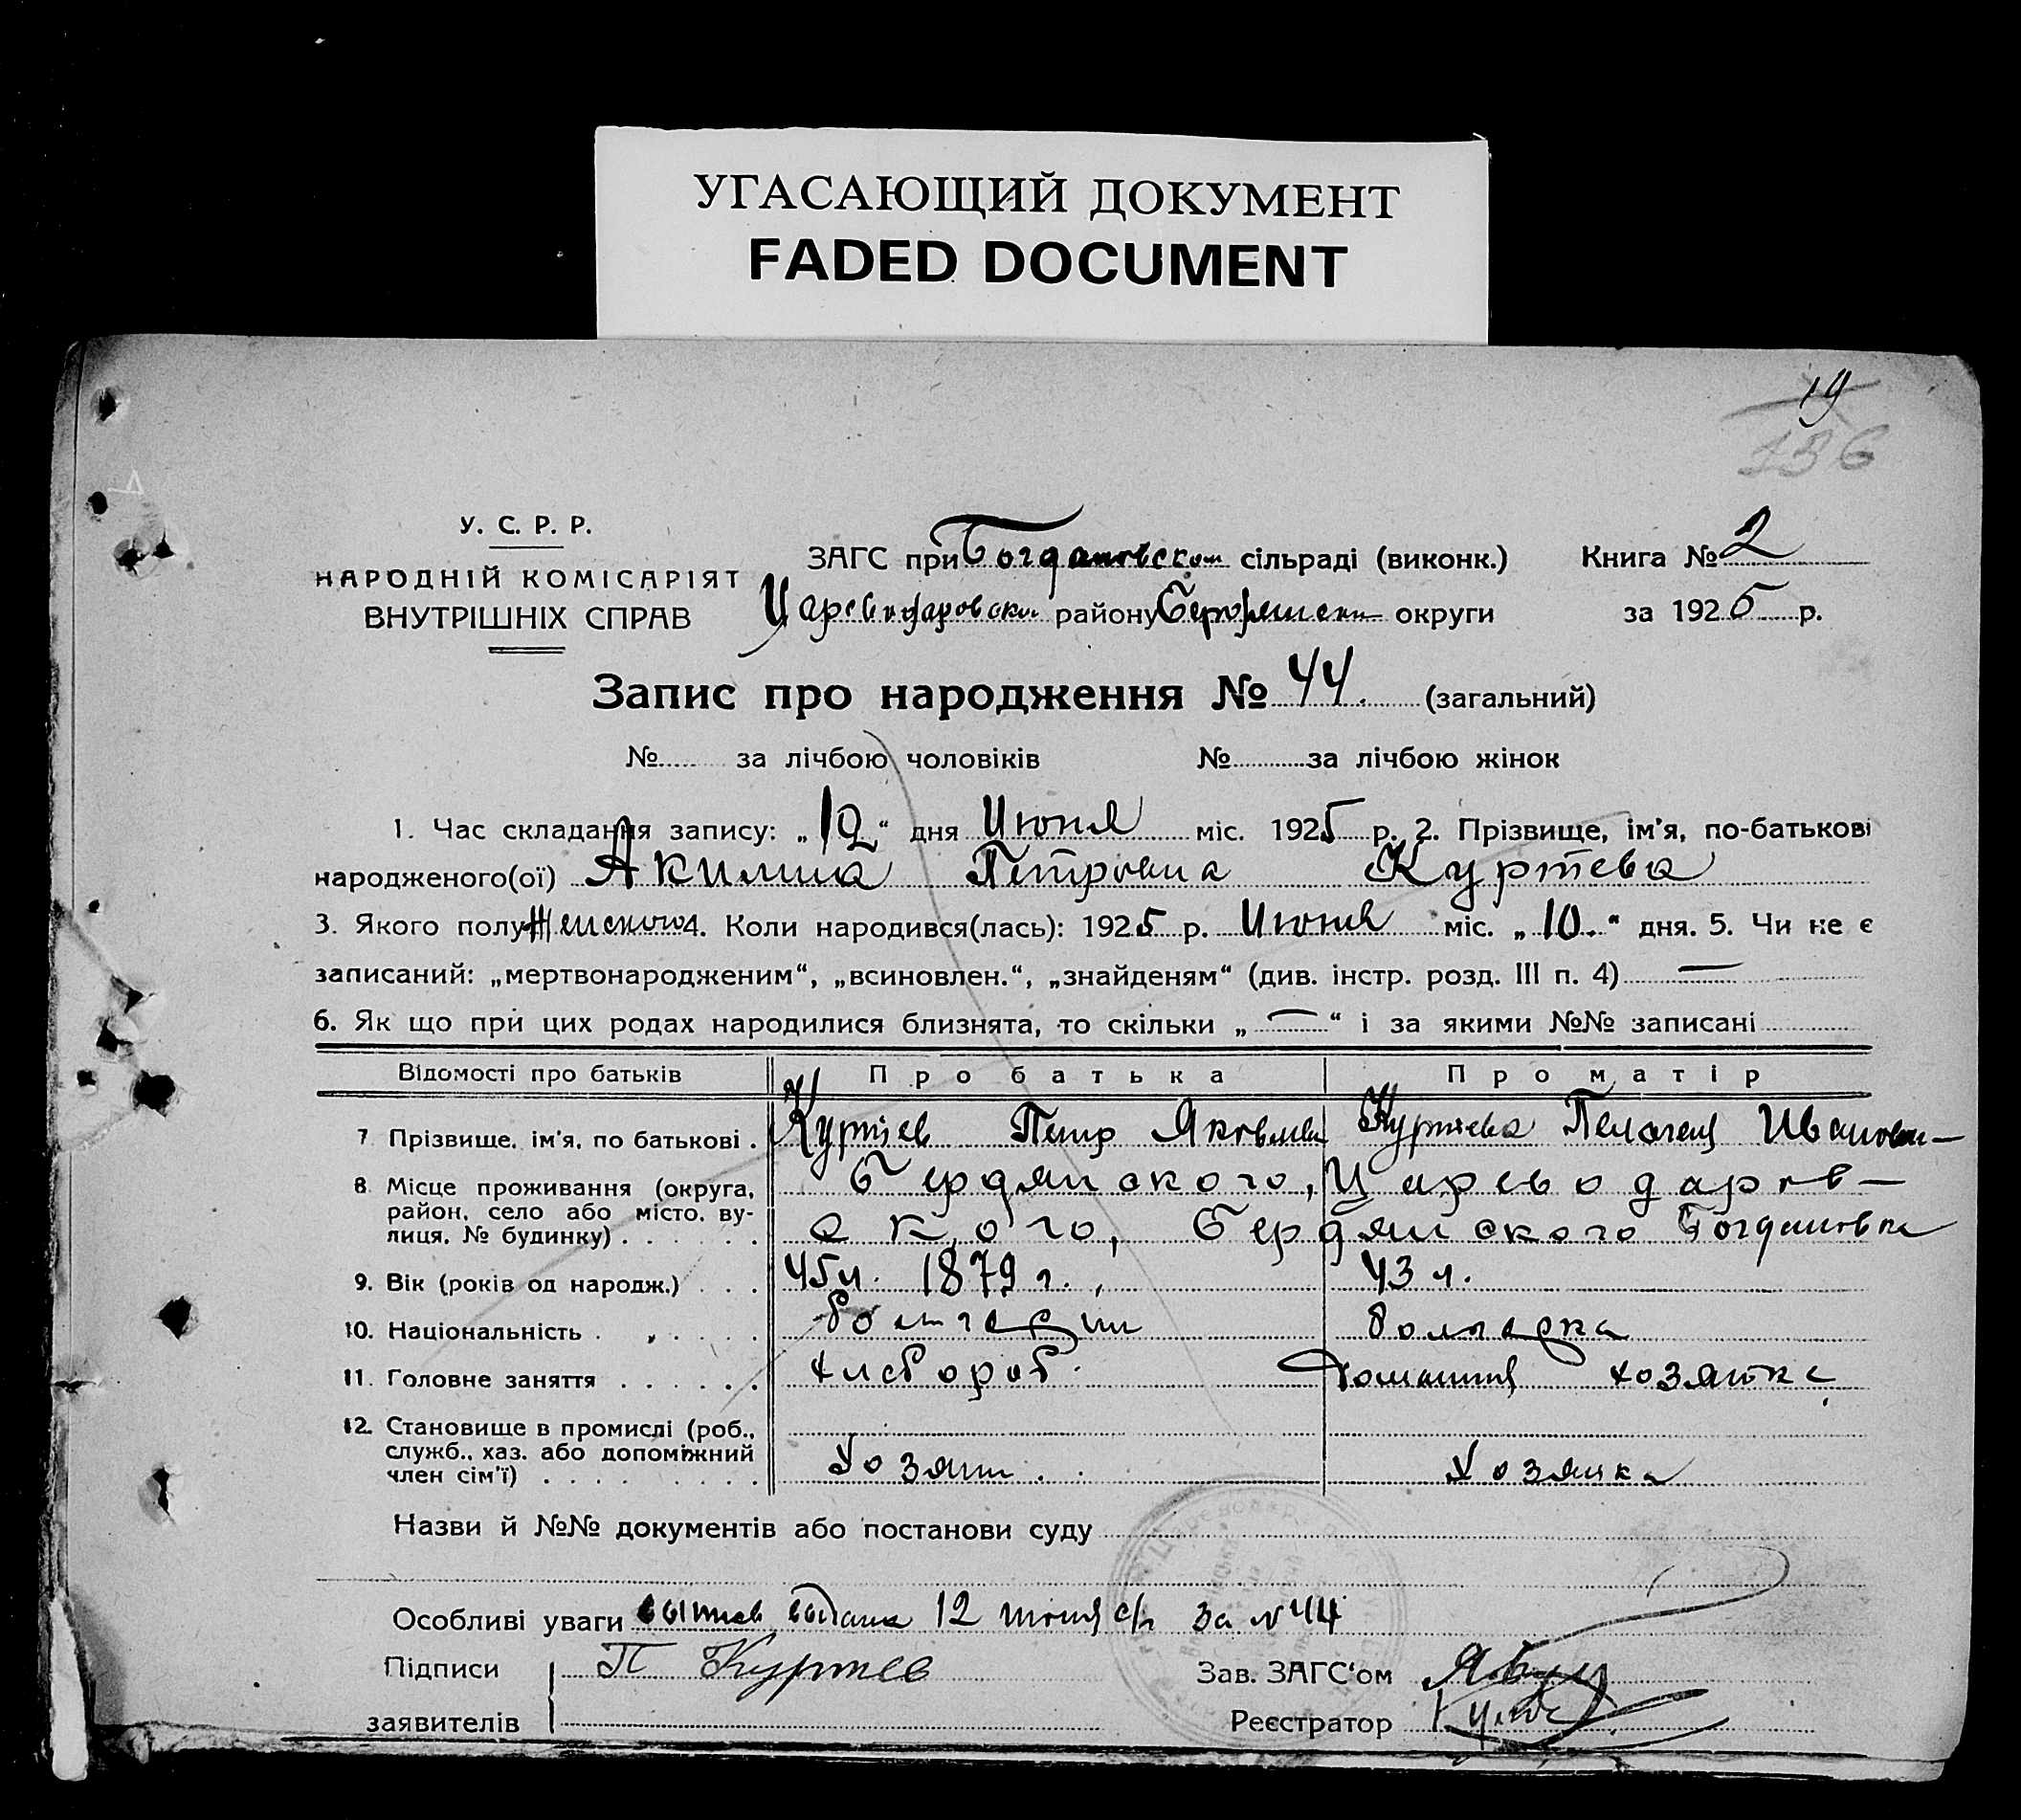 УГАСАЮЩИЙ ДОКУМЕНТ
FADED DOCUMENT
19
136
У. С. Р. Р.
НАРОДНІЙ КОМІСАРІЯТ
ВНУТРІШНІХ СПРАВ
ЗАГС при Богдановском сільраді (виконк.)
Цареводаровски району Бердянски округи
Книга № 2
за 1925 р.
Запис про народження № 44. (загальний)
№ за лічбою чоловіків № за лічбою жінок
1. Час складання запису: „12“ дня Июня міс. 1925 р. 2. Прізвище, ім'я, по-батькові
народженого(ої) Акилина Петровна Куртева
3. Якого полу Женского 4. Коли народився(лась): 1925 р. Июня міс. „10.“ дня. 5. Чи не є
записаний: „мертвонародженим“, „всиновлен.“, „знайденям“ (див. інстр. розд. III п. 4) —
6. Як що при цих родах народилися близнята, то скільки „—“ і за якими №№ записані
Відомості про батьків Про батька Про матір
7 Прізвище, ім'я, по батькові . Куртев Петр Яковлев Куртева Пелагея Ивановн—
8. Місце проживання (округа, район, село або місто, вулиця, № будинку) . . . . . . Бердянского, Цареводаров—
ского, Бердянского Богдановка
9. Вік (років од народж.) . . . 45 л. 1879 г. 43 л.
10. Національність . . . . . . болгарин болгарка
11. Головне заняття . . . . . . хлебороб. Домашняя хозяйка
12. Становище в промислі (роб., служб., хаз. або допоміжний член сім'ї) . . . . . . . Хозяин. Хозяйка
Назви й №№ документів або постанови суду
Особливі уваги выпись выдана 12 июня с/г за № 44
Підписи П Куртев Зав. ЗАГС'ом
заявителів Реєстратор